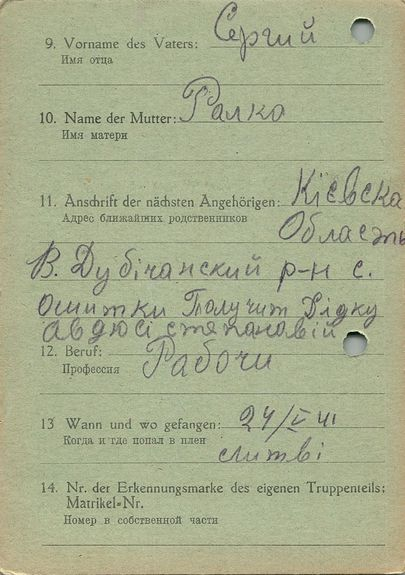 9. Vorname des Vaters: Сергий
Имя отца
10. Name der Mutter: Галка
Имя матери
11. Anschrift der nächsten Angehörigen: Кієвска
Адрес ближайших родственников
Область
В. Дубічанский р-н с.
Ошитки Получит Дідку
Авдюсі степановій
12. Beruf: Рабочи
Профессия
13 Wann und wo gefangen: 24/V 41
Когда и где попал в плен
14. Nr. der Erkennungsmarke des eigenen Truppenteils:
Matrikel-Nr.
Номер в собственной части